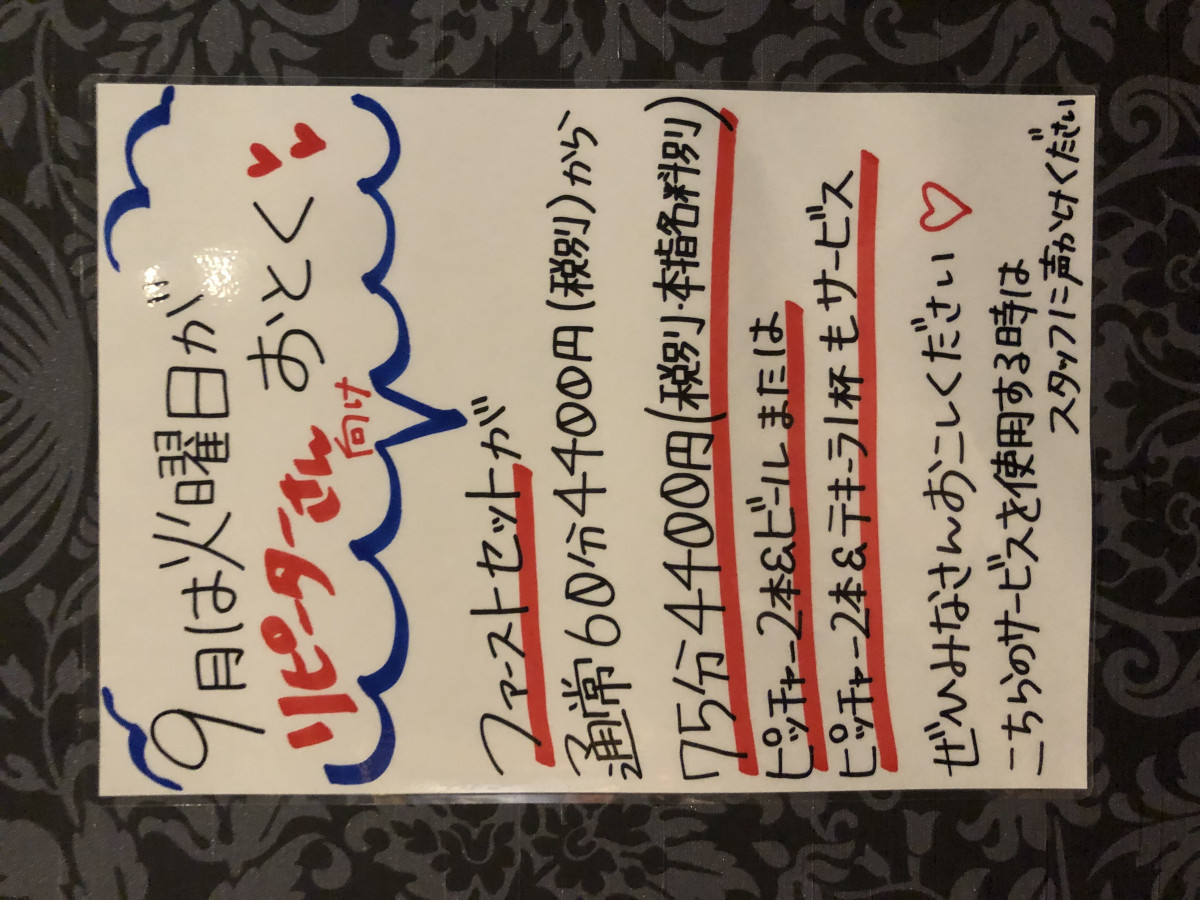 9月は火曜日が
おとく
リピーターさん向け
ファーストセットが
通常60分4400円(税別)から
75分4400円(税別・本指名料別)
ピッチャー2本&ビールまたは
ピッチャー2本&テキーラ1杯もサービス
ぜひみなさんおこしください♡
こちらのサービスを使用する時は
スタッフに声かけください